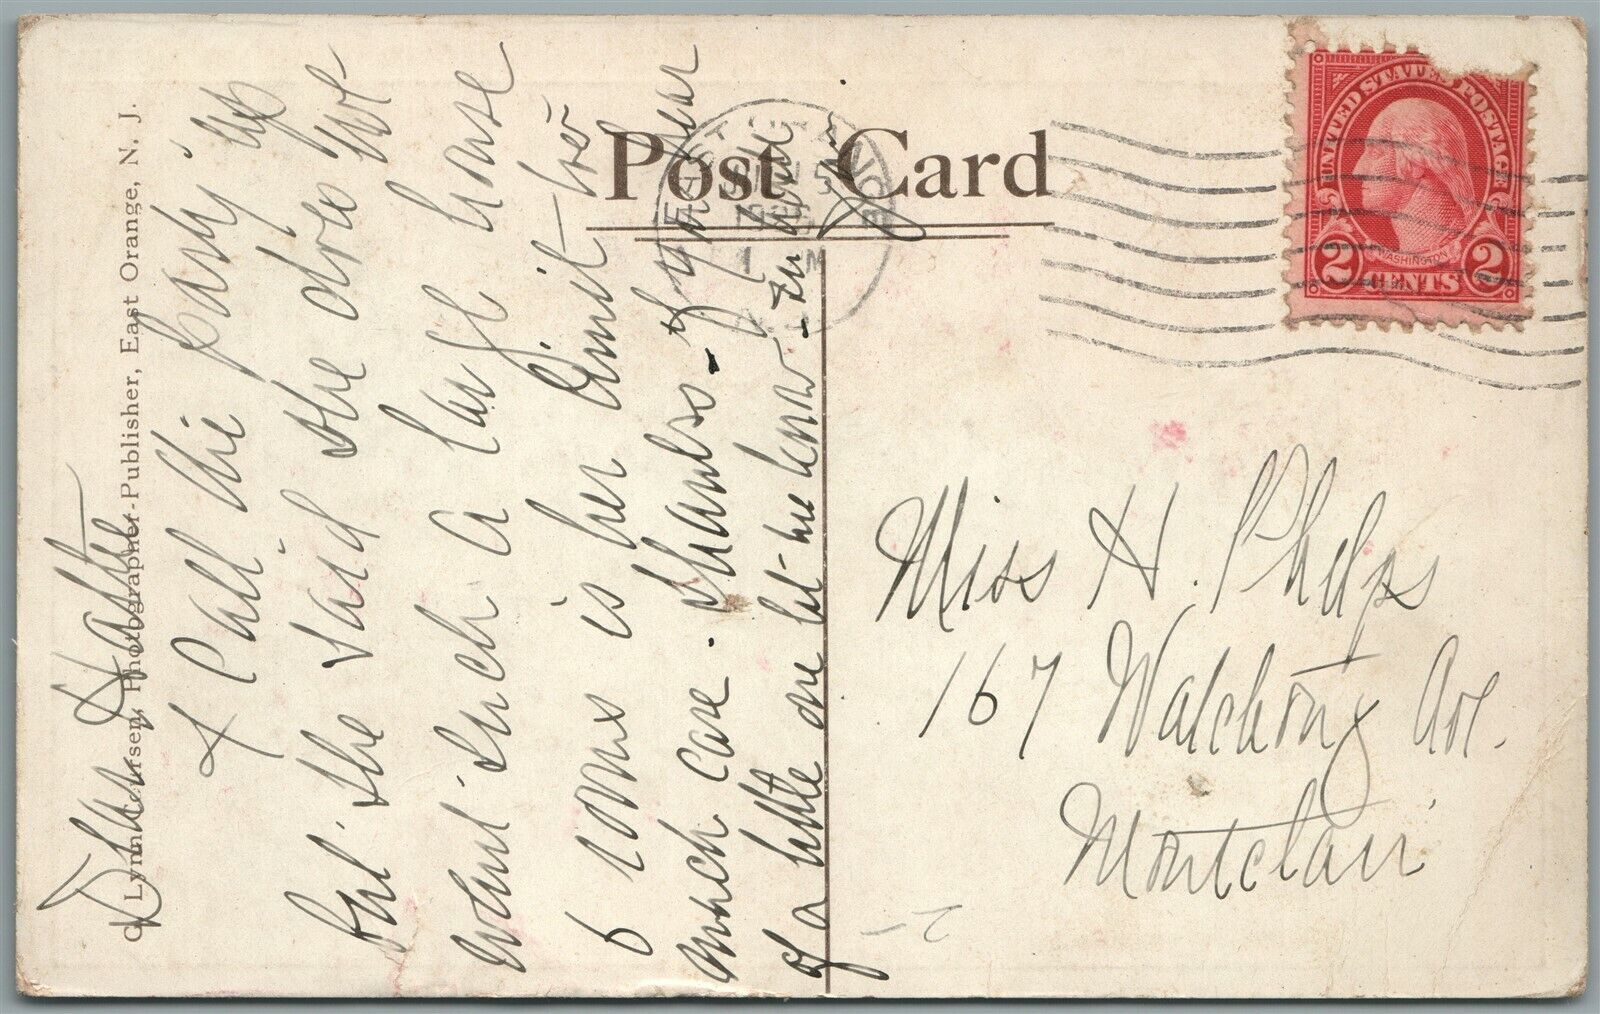 Dear Hattie
I call the party up
but she said she does not
want such a large house
6 rooms is her limit - too
much care. Thanks - if you hear
of a little one let me know - In haste
Post Card
UNITED STATES POSTAGE
WASHINGTON
2 CENTS 2
Miss H. Phelps
167 Watchung Ave.
Montclair
Photographer-Publisher, East Orange, N. J.